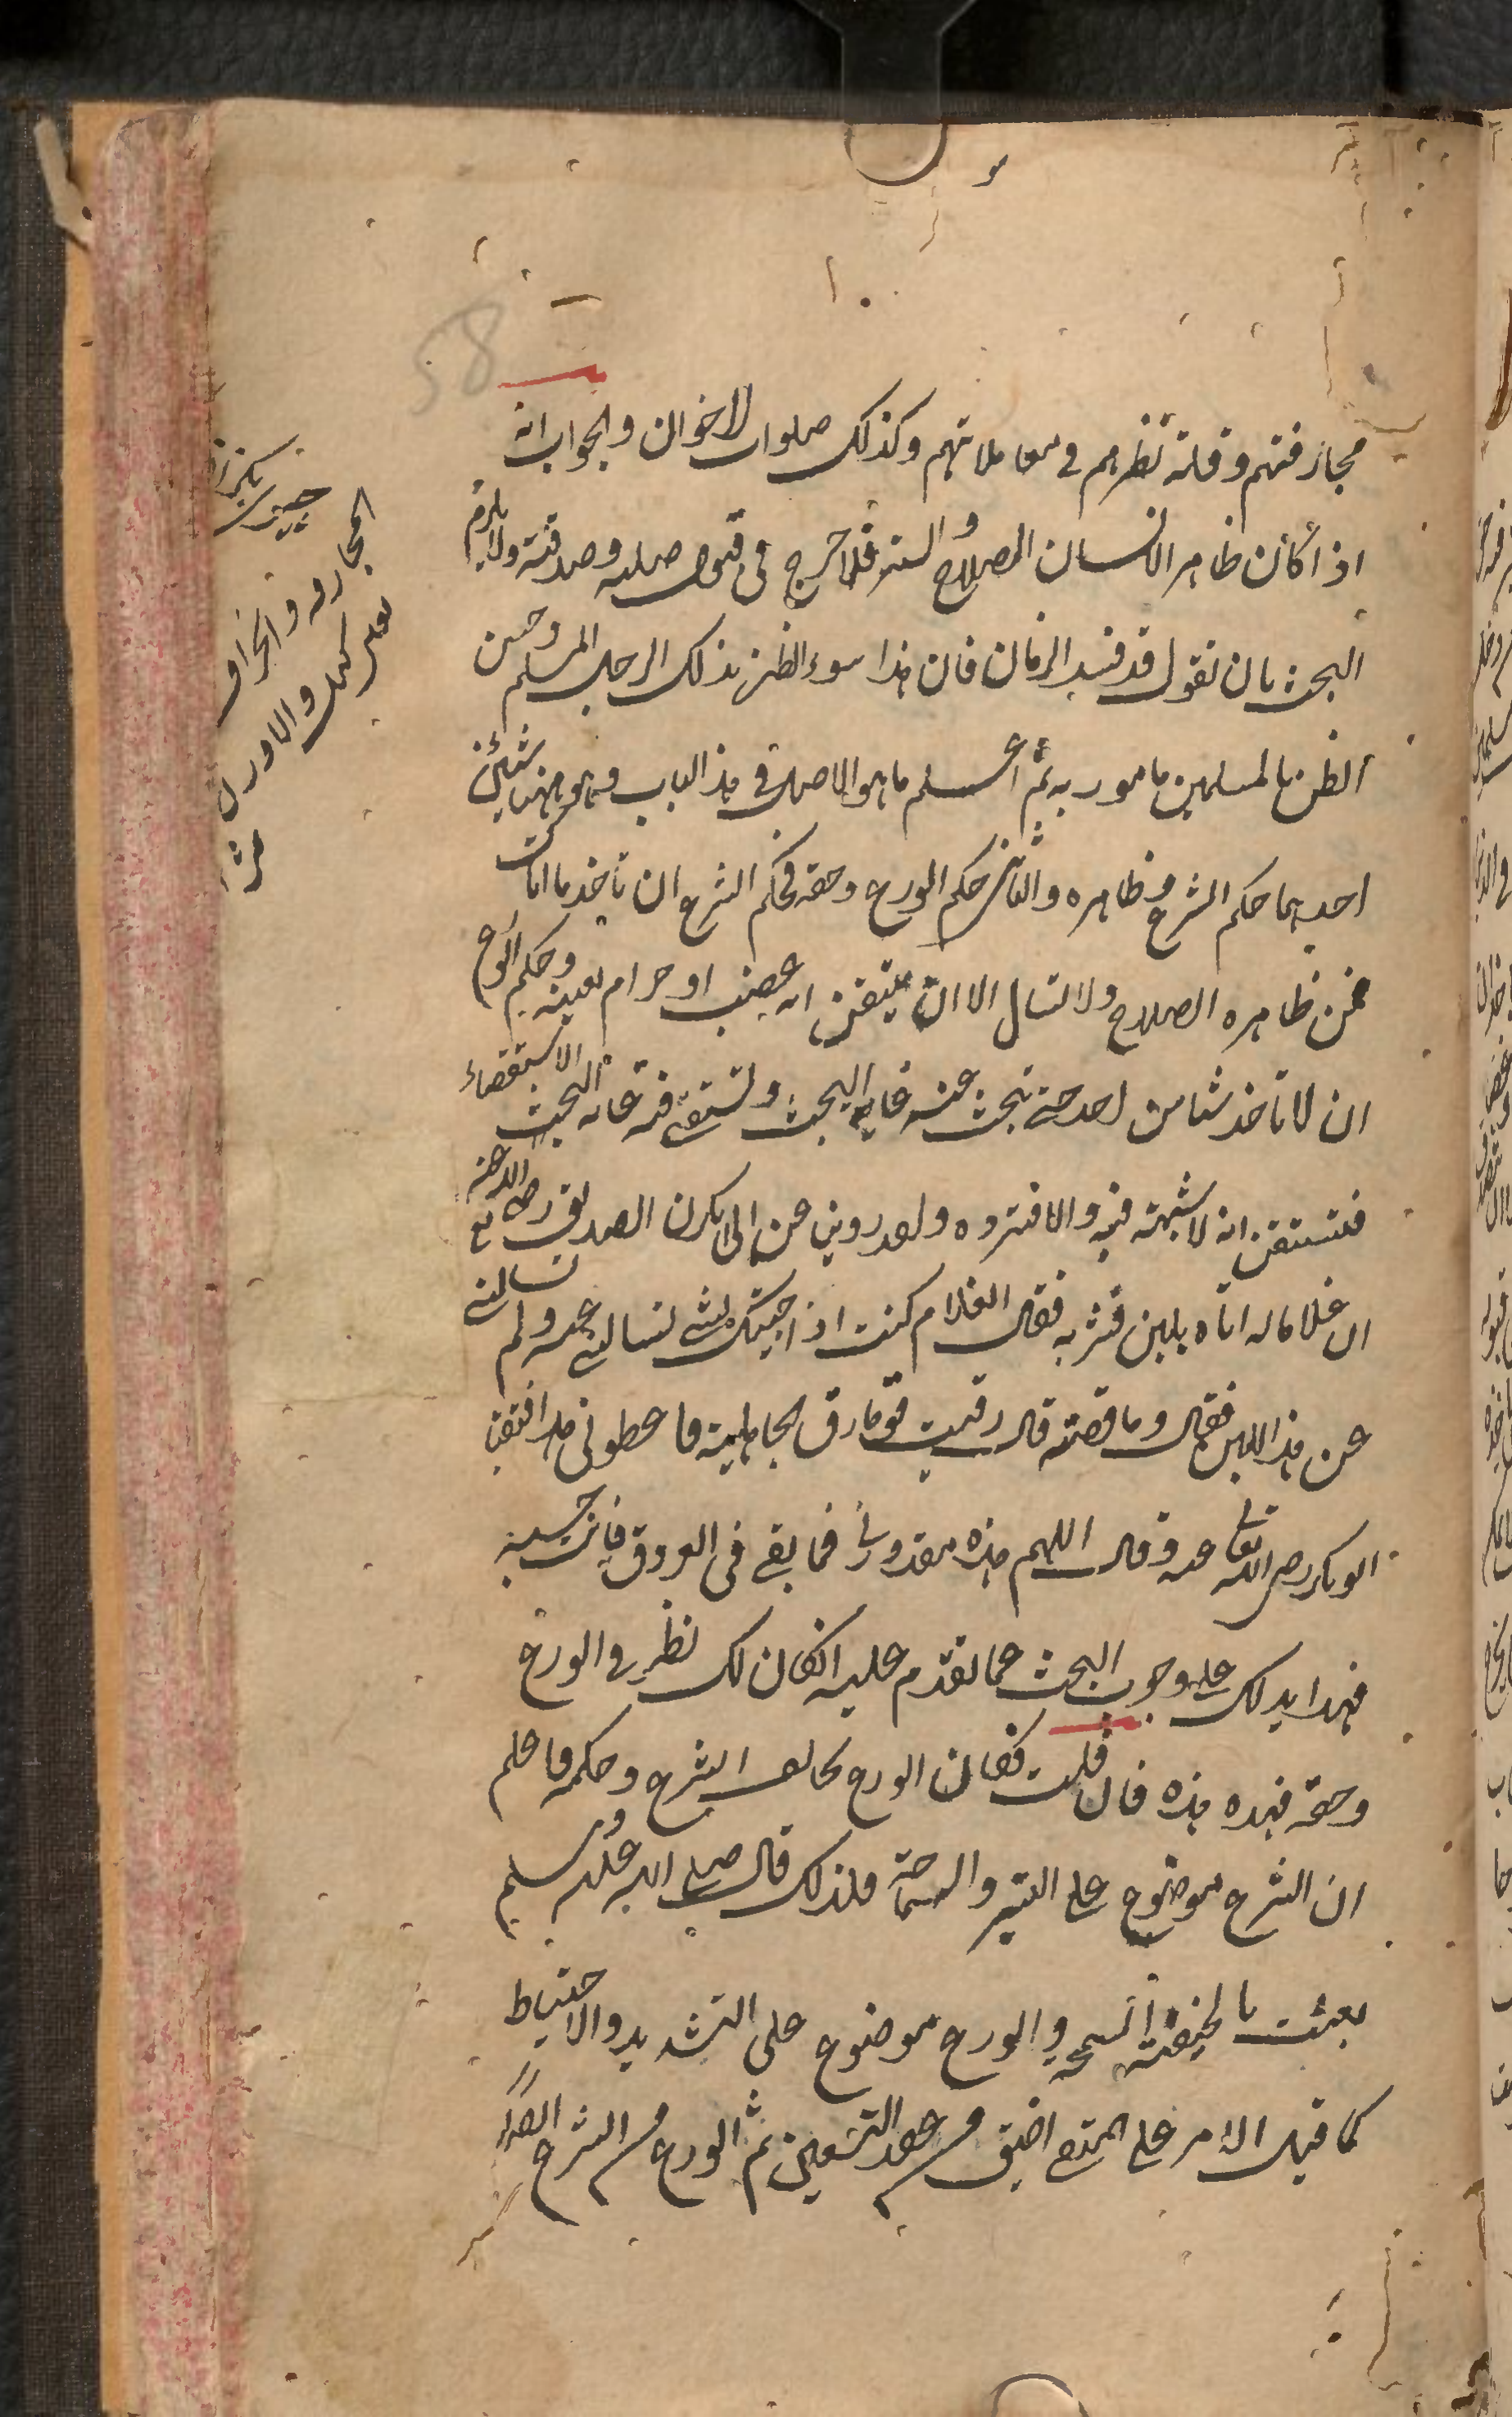 58
مجازفتهم وقلة نظرهم فى معاملاتهم وكذلك صلوات الاخوان والجواب انه
اذا كان ظاهر الانسان الصلاح والستر فلا حرج فى قبول صلته وصدقته ولا يلزم
البحث بان نقول قد فسد الزمان فان هذا سوء الظن بذلك الرجل المسلم وحسن
الظن بالمسلمين مامور به ثم اعلم ما هو الاصل فى هذا الباب وهو ان هنا شيئين
احدهما حكم الشرع وظاهره والثانى حكم الورع وحقه فحكم الشرع ان تأخذ ما اتاك
ممن ظاهره الصلاح ولا تسال الا ان تتيقن انه غصب او حرام بعينه وحكم الورع
ان لا تاخذ شيا من احد حتى تبحث عنه غاية البحث وتستقصى فيه غاية الاستقصاء
فتستيقن انه لا شبهة فيه والا فترده ولقد روينا عن ابى بكر ن الصديق رضى الله عنه
ان غلاما له اتاه بلبن فشربه فقال الغلام كنت اذا جيتك بشى تسالنى عنه ولم تسالنى
عن هذا اللبن فقال وما قصته قال رقيت قوما رقى الجاهلية فاعطونى هذا فتقيا
ابو بكر رضى الله تعالى عنه وقال اللهم هذه مقدورتى فما بقى فى العروق فانت حسيبه
فهذا يدلك على وجوب البحث عما تقدم عليه ان كان لك نظر فى الورع
وحقه فهذه هذه فان قلت فكان الورع يخالف الشرع وحكمه فاعلم
ان الشرع موضوع على اليسر والسماحة فلذلك قال صلى الله عليه وسلم
بعثت بالحنيفية السمحة والورع موضوع على التشديد والاحتياط
كما قيل الامر على المتقى اضيق من عقد التسعين ثم الورع من الشرع ايضا